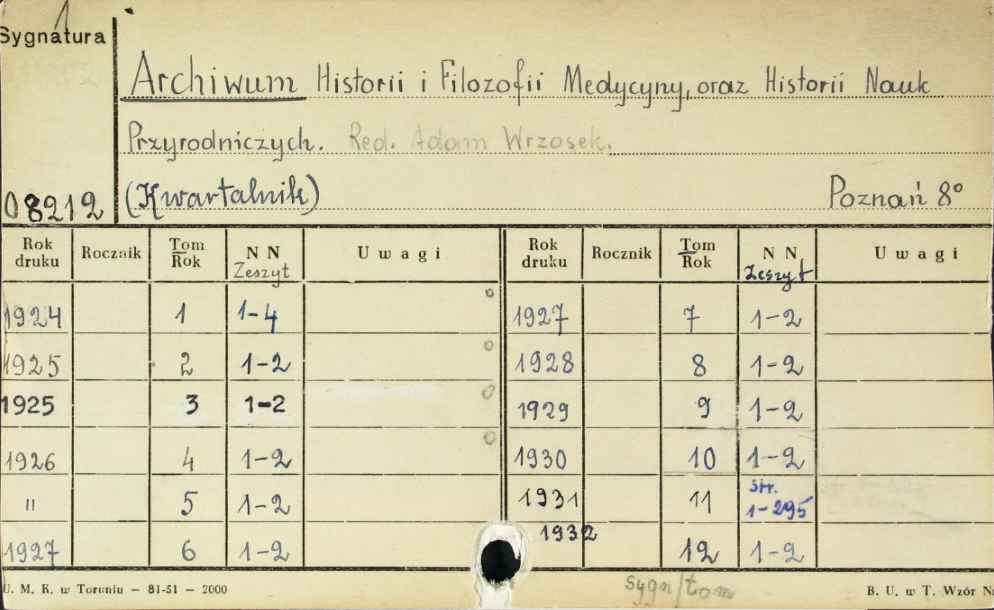 1
Sygnatura
Archiwum Historii i Filozofii Medycyny, oraz Historii Nauk
Przyrodniczych. Red. Adam Wrzosek.
08212 (Kwartalnik) Poznań 8°
Rok druku Rocznik Tom Rok N N Zeszyt Uwagi Rok druku Rocznik Tom Rok N N Zeszyt Uwagi
1924 1 1-4 o 1927 7 1-2
1925 2 1-2 o 1928 8 1-2
1925 3 1-2 o 1929 9 1-2
1926 4 1-2 o 1930 10 1-2
" 5 1-2 1931 11 str. 1-295
1927 6 1-2 1932 12 1-2
U. M. K. w Toruniu — 81-51 — 2000 sygn/tom B. U. w T. Wzór Nr